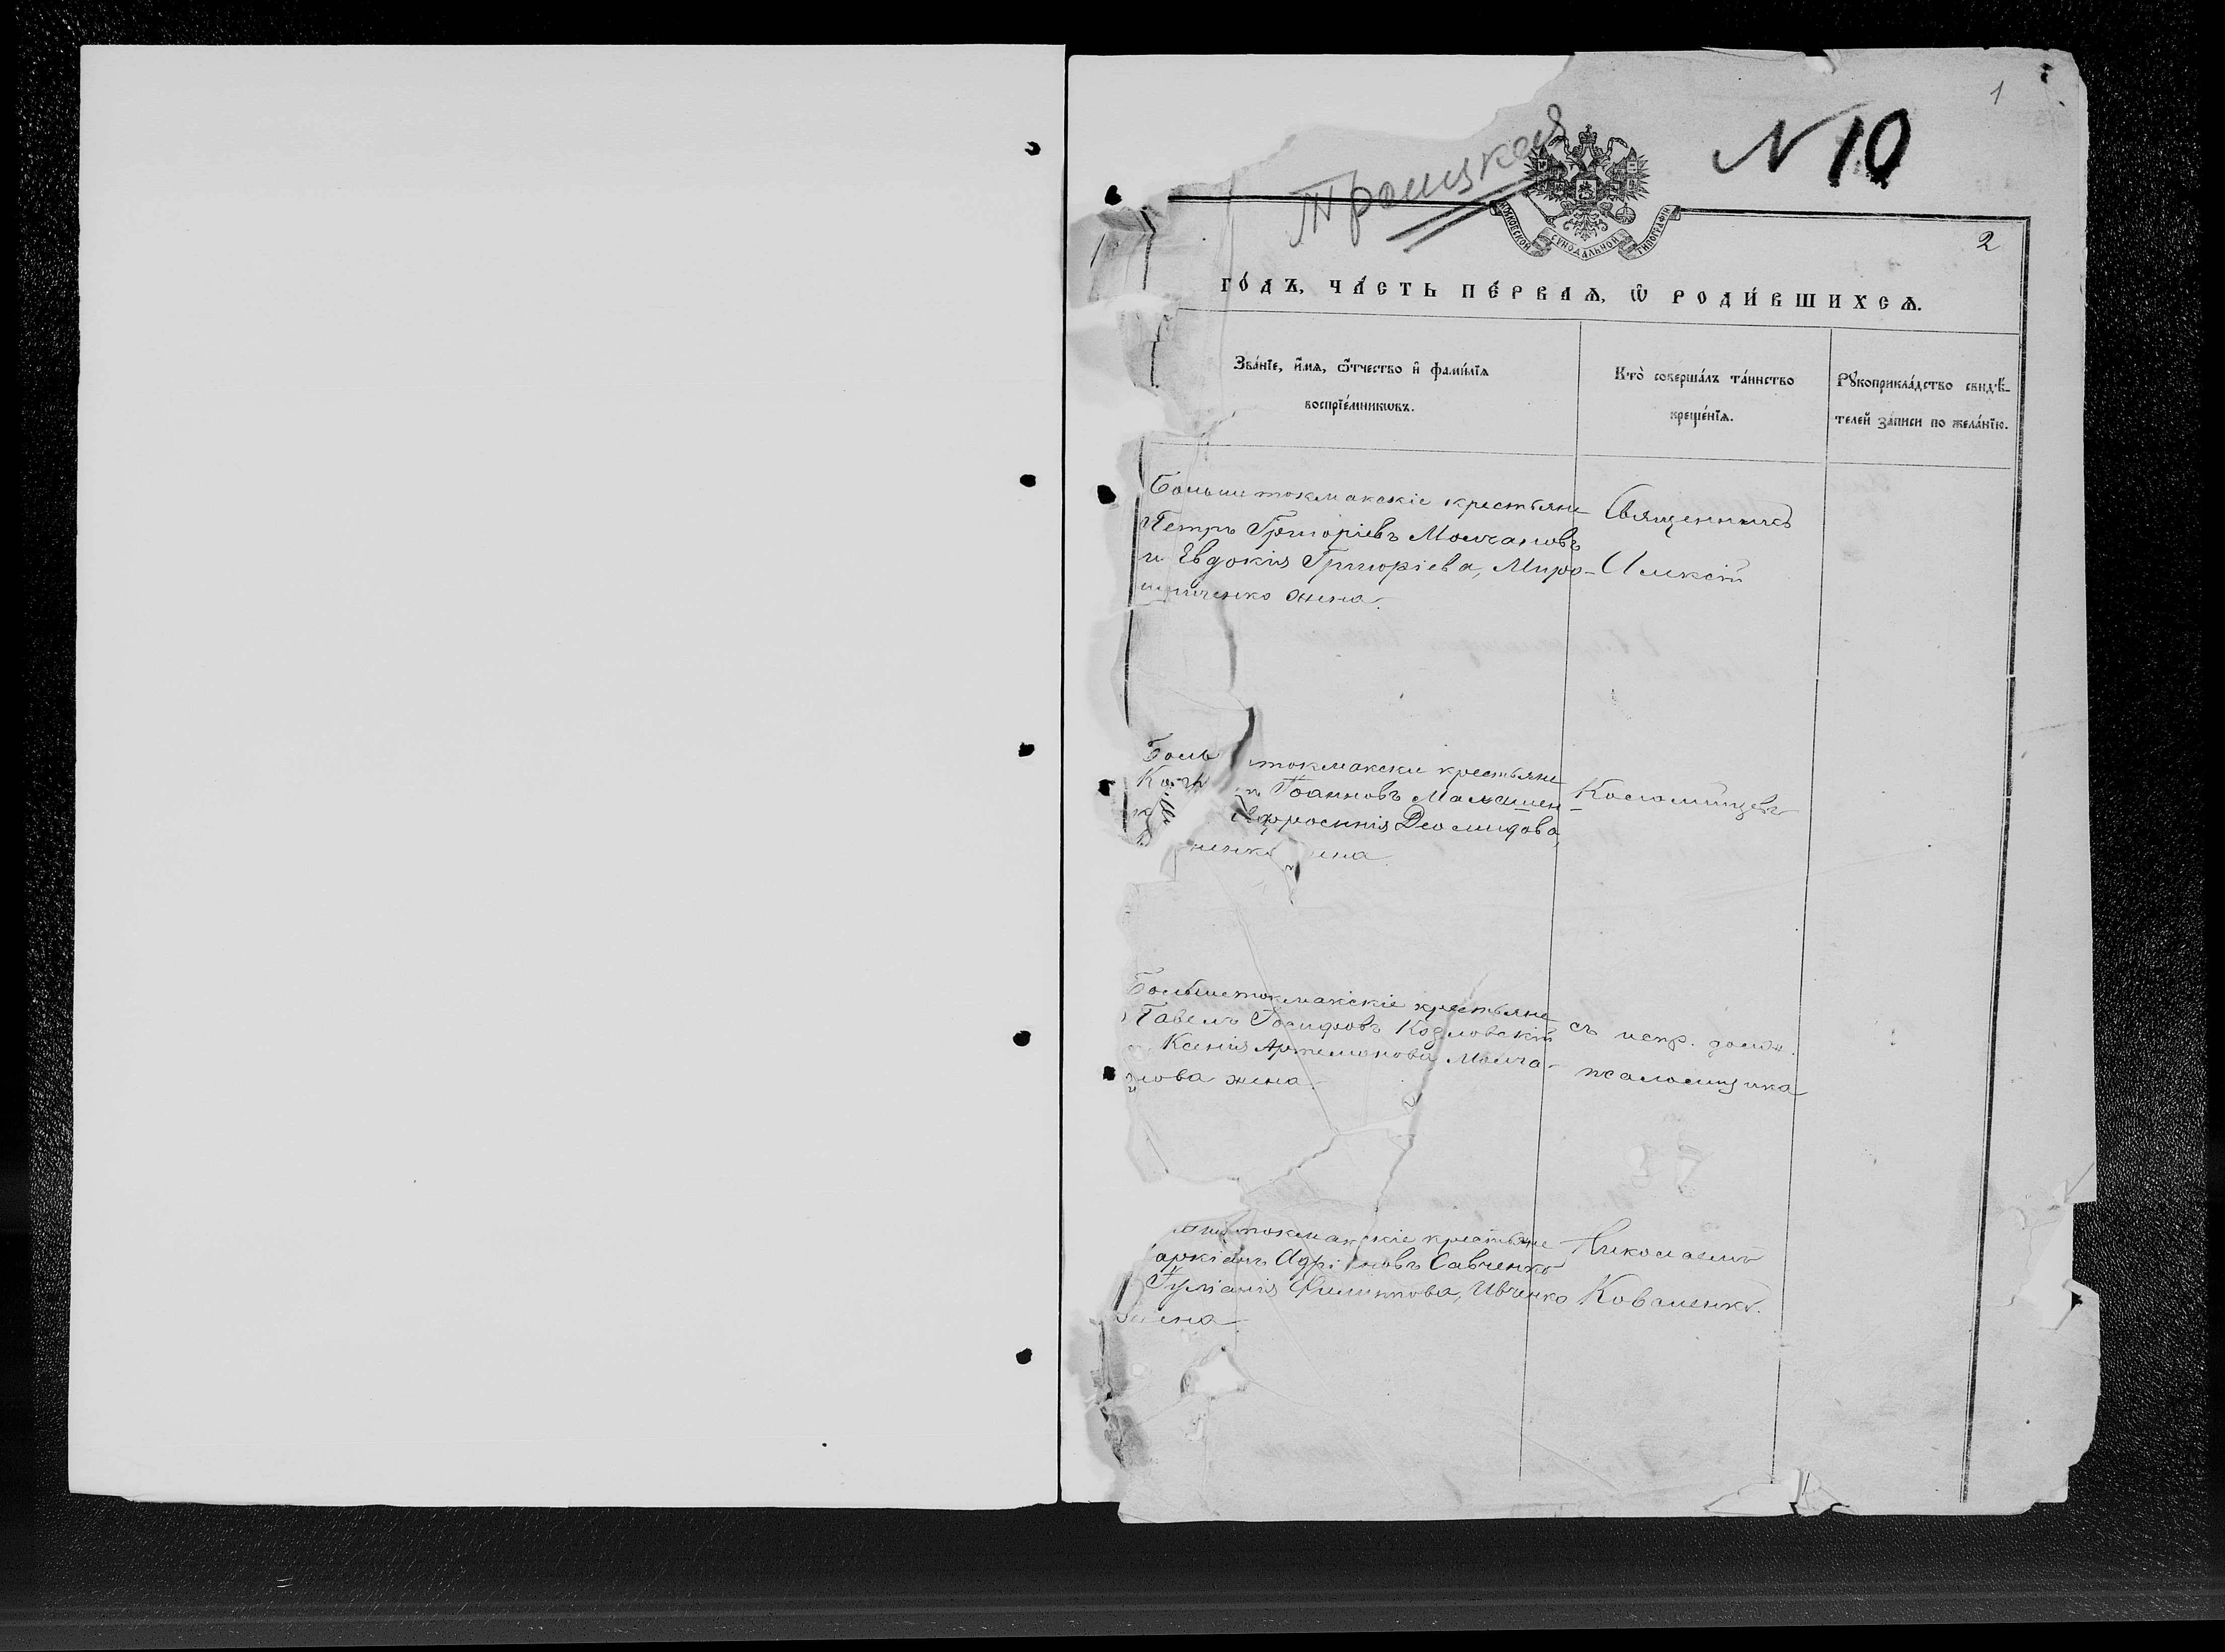 1
N 10
Троицкая
МОСКОВСКОЙ СѴНОДАЛЬНОЙ ТИПОГРАФІИ
2
ГО́ДЪ, ЧА́СТЬ ПЕ́РВАѦ, Ѽ РОДИ́ВШИХСѦ.
Зва́нїе, и҆́мѧ, ѻ҆́тчество и҆ фами́лїѧ
воспрїе́мникѡвъ.
Кто̀ соверша́лъ та́инство
креще́нїѧ.
Рꙋкоприкла́дство свидѣ́-
телей за́писи по жела́нїю.
Большетокмакскіе крестьяне
Петръ Григоріевъ Молчановъ
и Евдокія Григоріева, Миро-
шниченко жена.
Священникъ
Алексій
Боль токмакскіе крестьяне
Іоанновъ Малашен-
Евфросинія Деомидова,
ненко ена.
Коломійцевъ
Большетокмакскіе крестьяне
Павелъ Іосифовъ Козловскій
Ксенія Артемонова Молча-
нова жена.
съ испр. долж.
псаломщика
токмакскіе крестьяне
аркіанъ Адріановъ Савченко
Іуліанія Филиппова, Ивченко
жена
Николаемъ
Коваленко.